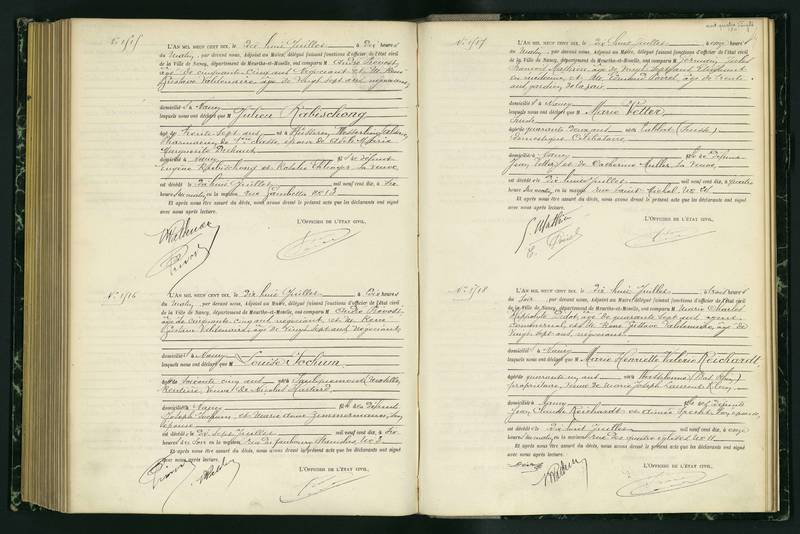 N° 1515
L'AN MIL NEUF CENT DIX, le dix huit Juillet à dix heures
du matin, par devant nous, Adjoint au Maire, délégué faisant fonctions d'officier de l'état civil
de la Ville de Nancy, département de Meurthe-et-Moselle, ont comparu M André Provost
âgé de cinquante cinq ans négociant et M René
Gustave Valdenaire, âgé de vingt sept ans négociants
domiciliés à Nancy
lesquels nous ont déclaré que M Julien Rabischong
âgé de trente sept ans né à Husseren Wesserling
Pharmacien de 1ère classe époux de
Marguerite
domicilié à Nancy fils de défunt
Eugène Rabischong et Natalie sa veuve
est décédé le dix huit Juillet mil neuf cent dix, à six
heures du matin, en la maison rue Gambetta N° 13
Et après nous être assuré du décès, nous avons dressé le présent acte que les déclarants ont signé
avec nous après lecture.
L'OFFICIER DE L'ÉTAT CIVIL,
N° 1516
L'AN MIL NEUF CENT DIX, le dix huit Juillet à dix heures
du matin, par devant nous, Adjoint au Maire, délégué faisant fonctions d'officier de l'état civil
de la Ville de Nancy, département de Meurthe-et-Moselle, ont comparu M André Provost
âgé de cinquante cinq ans négociant, et M René
Gustave Valdenaire, âgé de vingt sept ans négociants
domiciliés à Nancy
lesquels nous ont déclaré que M Louise Jochum
âgée de soixante cinq ans née à (Moselle)
Rentière, veuve de Nicolas
domiciliée à Nancy fille de défunts
Joseph Jochum, et Marie Anne Zimmermann, son
épouse
est décédée le dix sept Juillet mil neuf cent dix, à six
heures du soir en la maison rue du faubourg Stanislas N° 2
Et après nous être assuré du décès, nous avons dressé le présent acte que les déclarants ont signé
avec nous après lecture.
L'OFFICIER DE L'ÉTAT CIVIL,
N° 1517
L'AN MIL NEUF CENT DIX, le dix huit Juillet à onze heures
du matin, par devant nous, Adjoint au Maire, délégué faisant fonctions d'officier de l'état civil
de la Ville de Nancy, département de Meurthe-et-Moselle, ont comparu M Germain Jules
François Mathieu âgé de vingt ans étudiant
en médecine, et M Edouard âgé de trente
ans
domiciliés à Nancy
lesquels nous ont déclaré que M Marie Vetter
âgée de quarante deux ans née à (Suisse)
Domestique Célibataire
domiciliée à Nancy fille de défunt
Jean Vetter et de Catherine Muller sa veuve
est décédée le dix huit Juillet mil neuf cent dix, à quatre
heures du matin, en la maison rue Saint Michel N°
Et après nous être assuré du décès, nous avons dressé le présent acte que les déclarants ont signé
avec nous après lecture.
L'OFFICIER DE L'ÉTAT CIVIL,
N° 1518
L'AN MIL NEUF CENT DIX, le dix huit Juillet à trois heures
du soir, par devant nous, Adjoint au Maire, délégué faisant fonctions d'officier de l'état civil
de la Ville de Nancy, département de Meurthe-et-Moselle, ont comparu M Marie Charles
Hippolyte Didot, âgé de quarante sept ans agent
commercial, et M René Gustave Valdenaire, âgé de
vingt sept ans, négociant
domiciliés à Nancy
lesquels nous ont déclaré que M Marie Henriette Valérie Reichardt,
âgée de quarante un ans née à (Bas Rhin)
propriétaire, veuve de Marie Joseph Laurent
domiciliée à Nancy fille de défunts
Jean Claude Reichardt et Aimée son épouse,
est décédée le dix huit Juillet mil neuf cent dix, à onze
heures du matin, en la maison rue des quatre églises N° 11
Et après nous être assuré du décès, nous avons dressé le présent acte que les déclarants ont signé
avec nous après lecture.
L'OFFICIER DE L'ÉTAT CIVIL,